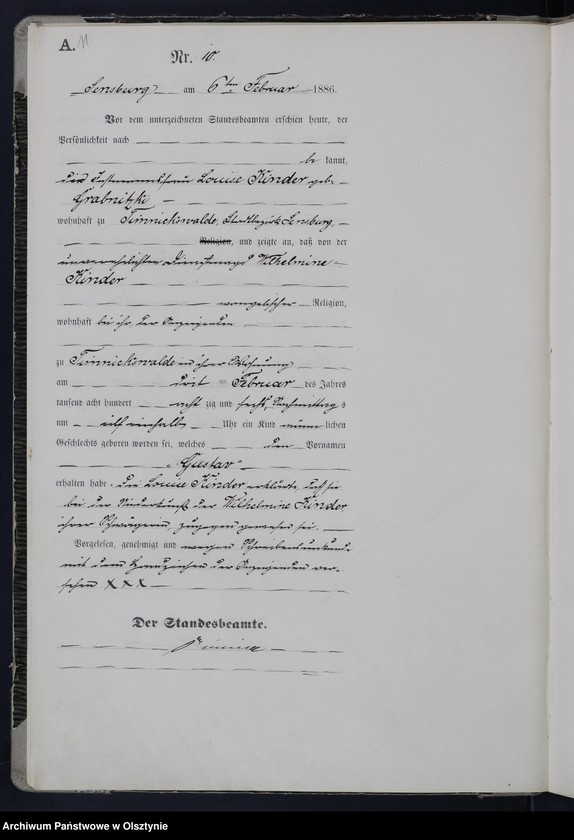 A. 11
Nr. 10.
Sensburg am 6ten Februar 1886.
Vor dem unterzeichneten Standesbeamten erschien heute, der
Persönlichkeit nach
be kannt,
die Instmannsfrau Louise Kinder geb.
Grabnitzki
wohnhaft zu Timnickswalde, Stadtbezirk Sensburg,
Religion, und zeigte an, daß von der
unverehelichten Dienstmagd Wilhelmine
Kinder
evangelischer Religion,
wohnhaft bei ihr, der Anzeigenden
zu Timnickswalde in ihrer Wohnung
am drit ten Februar des Jahres
tausend acht hundert acht zig und sechs, Nachmittag s
um elf einhalb Uhr ein Kind männ lichen
Geschlechts geboren worden sei, welches den Vornamen
"Gustav"
erhalten habe. Die Louise Kinder erklärte, daß sie
bei der Niederkunft der Wilhelmine Kinder
ihrer Schwägerin, zugegen gewesen sei.
Vorgelesen, genehmigt und wegen Schreibensunkunde
mit dem Handzeichen der Anzeigenden ver-
sehen XXX
Der Standesbeamte.
Archiwum Państwowe w Olsztynie